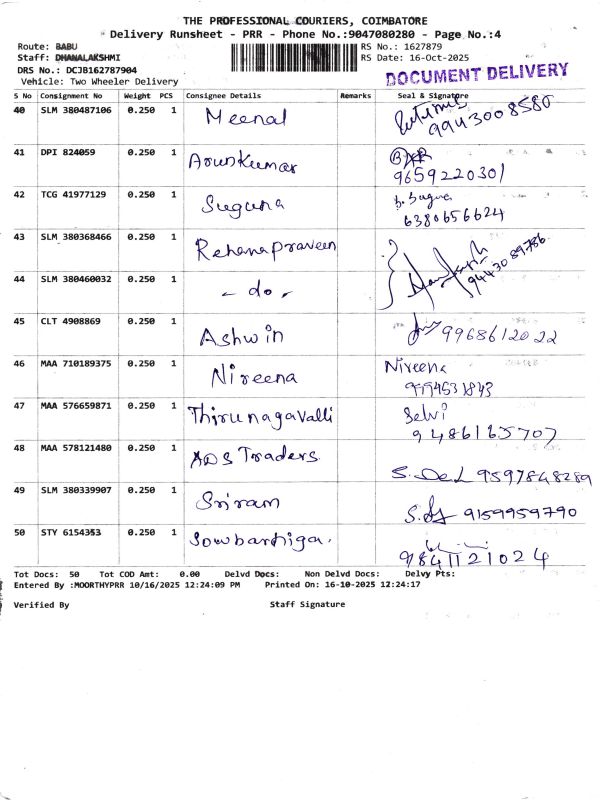 THE PROFESSIONAL COURIERS, COIMBATORE
Delivery Runsheet - PRR - Phone No.:9047080280 - Page No.:4
Route: BABU
RS No.: 1627879
Staff: DHANALAKSHMI
RS Date: 16-Oct-2025
DRS No.: DCJB162787904
Vehicle: Two Wheeler Delivery
DOCUMENT DELIVERY
S No Consignment No Weight PCS Consignee Details Remarks Seal & Signature
40 SLM 380487106 0.250 1 Meenal 9943008580
41 DPI 824059 0.250 1 Arunkumar 9659220301
42 TCG 41977129 0.250 1 Suguna S. Suguna 6380656624
43 SLM 380368466 0.250 1 Rehanapraveen 9443089786
44 SLM 380460032 0.250 1 - do -
45 CLT 4908869 0.250 1 Ashwin 9968612022
46 MAA 710189375 0.250 1 Nireena Nireena 9994531843
47 MAA 576659871 0.250 1 Thirunagavalli Selvi 9486165707
48 MAA 578121480 0.250 1 ADS Traders 9597848289
49 SLM 380339907 0.250 1 Sriram 9159959790
50 STY 6154353 0.250 1 Sowbarhiga. 9841121024
Tot Docs: 50 Tot COD Amt: 0.00 Delvd Docs: Non Delvd Docs: Delvy Pts:
Entered By :MOORTHYPRR 10/16/2025 12:24:09 PM Printed On: 16-10-2025 12:24:17
Verified By Staff Signature